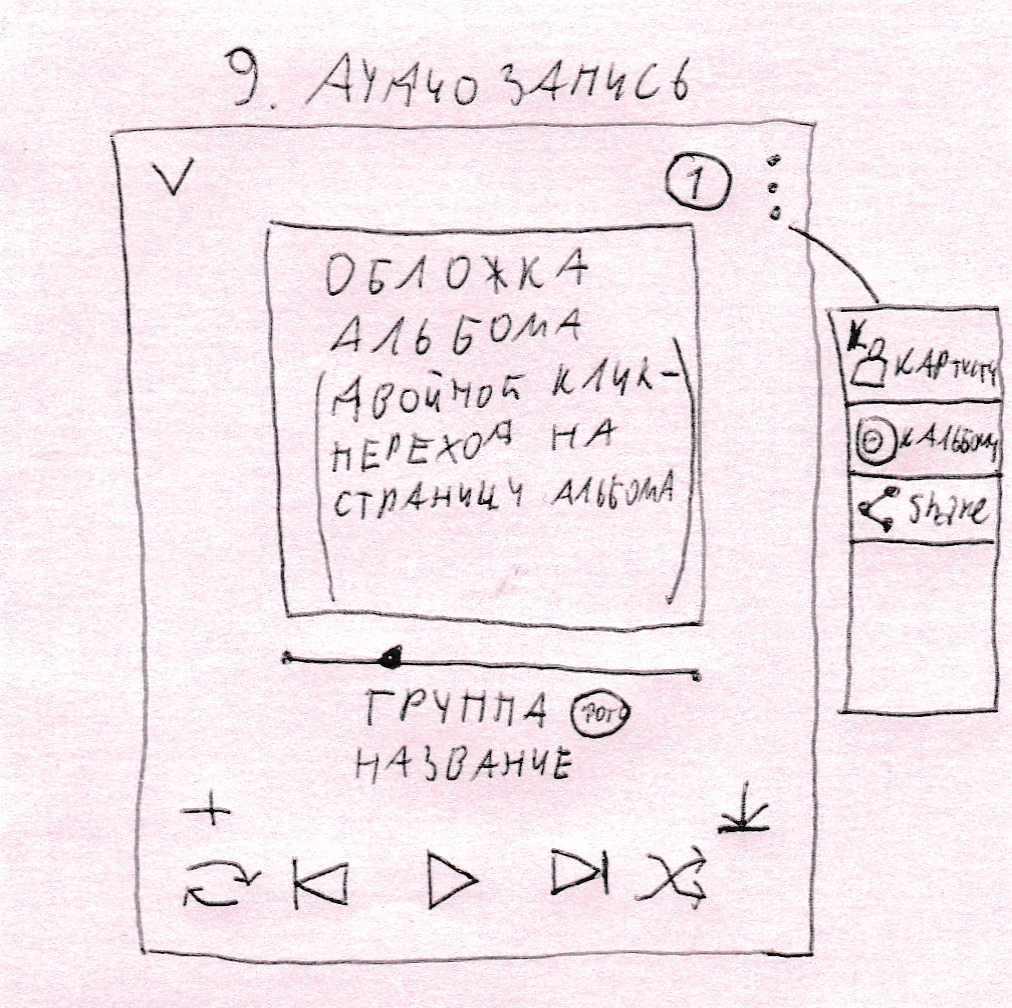 9. АУДИОЗАПИСЬ
1
ОБЛОЖКА
АЛЬБОМА
(ДВОЙНОЙ КЛИК-
ПЕРЕХОД НА
СТРАНИЦУ АЛЬБОМА)
К АРТИСТУ
К АЛЬБОМУ
Share
ГРУППА ФОТО
НАЗВАНИЕ